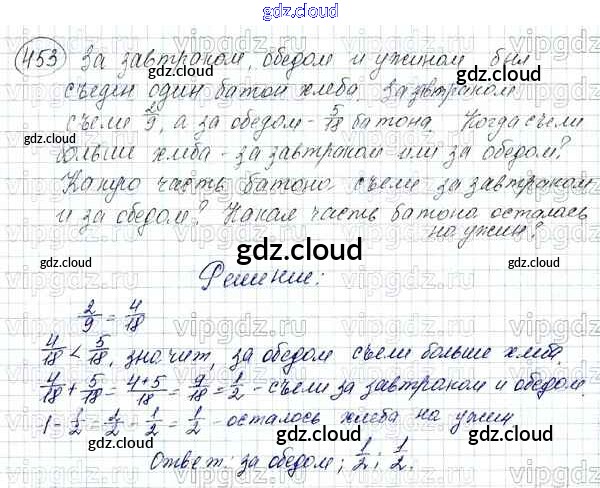 gdz.cloud
453 За завтраком, обедом и ужином был
съеден один батон хлеба. За завтраком
съели 2/9, а за обедом - 5/18 батона. Когда съели
больше хлеба - за завтраком или за обедом?
Какую часть батона съели за завтраком
и за обедом? Какая часть батона осталась
на ужин?
gdz.cloud
Решение:
2/9 = 4/18
4/18 < 5/18, значит, за обедом съели больше хлеба.
4/18 + 5/18 = 4+5/18 = 9/18 = 1/2 - съели за завтраком и обедом.
1 - 1/2 = 2/2 - 1/2 = 1/2 - осталось хлеба на ужин
Ответ: за обедом; 1/2; 1/2.
gdz.cloud